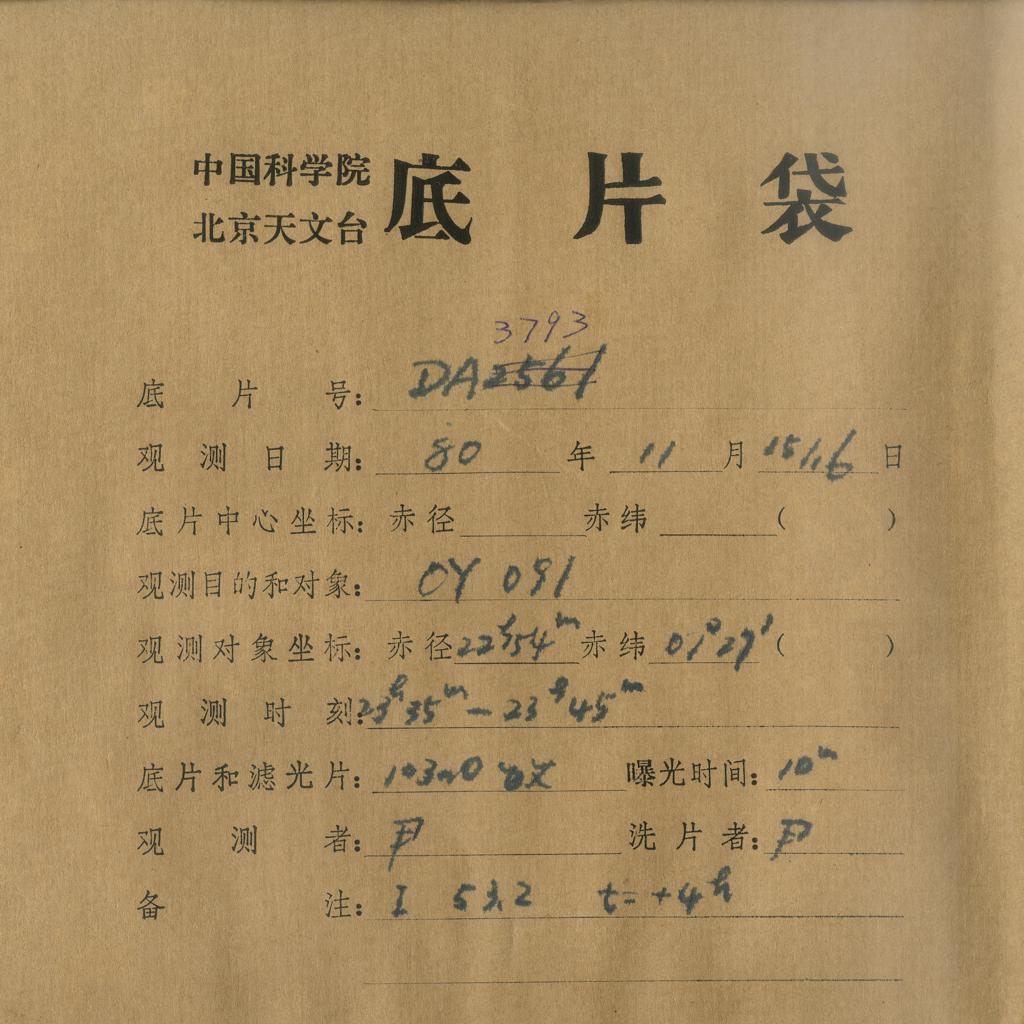 中国科学院
北京天文台
底片袋
3793
底片号: DA2561
观测日期: 80年11月15/16日
底片中心坐标: 赤径 赤纬 ( )
观测目的和对象: OY 091
观测对象坐标: 赤径22h54m赤纬01°27′( )
观测时刻: 23h35m—23h45m
底片和滤光片: 103aO 曝光时间: 10m
观测者: 尹 洗片者: 尹
备注: I 53.2 t=+4h